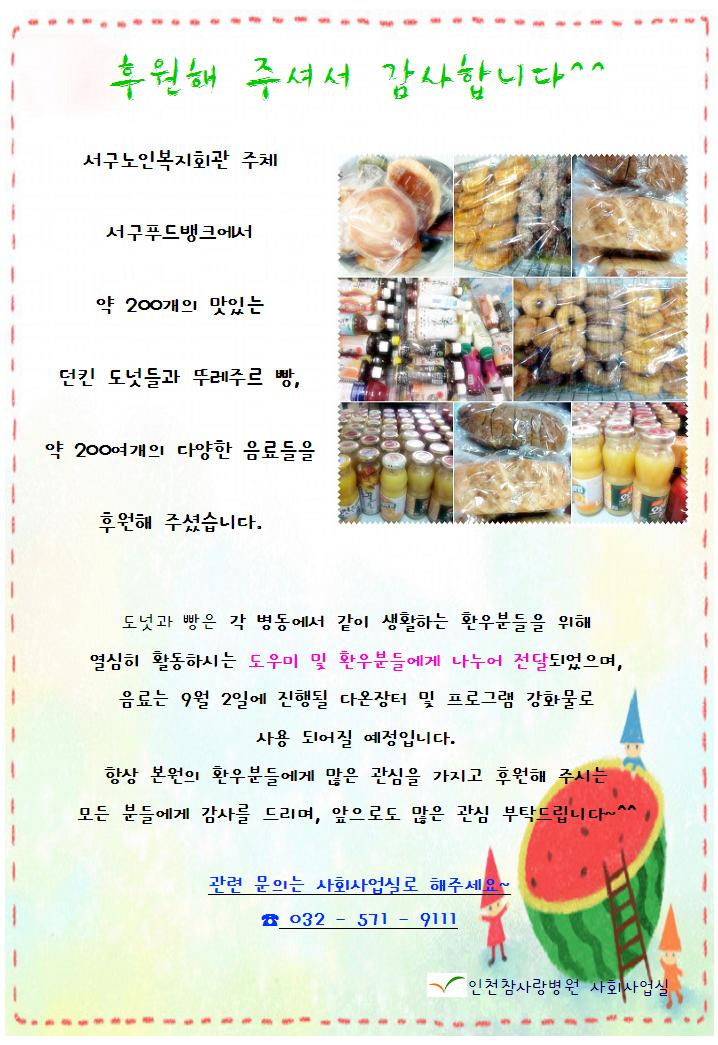 후원해 주셔서 감사합니다^^
서구노인복지회관 주체
서구푸드뱅크에서
약 200개의 맛있는
던킨 도넛들과 뚜레주르 빵,
약 200여개의 다양한 음료들을
후원해 주셨습니다.
도넛과 빵은 각 병동에서 같이 생활하는 환우분들을 위해
열심히 활동하시는 도우미 및 환우분들에게 나누어 전달되었으며,
음료는 9월 2일에 진행될 다온장터 및 프로그램 강화물로
사용 되어질 예정입니다.
항상 본원의 환우분들에게 많은 관심을 가지고 후원해 주시는
모든 분들에게 감사를 드리며, 앞으로도 많은 관심 부탁드립니다~^^
관련 문의는 사회사업실로 해주세요~
☎ 032 - 571 - 9111
인천참사랑병원 사회사업실